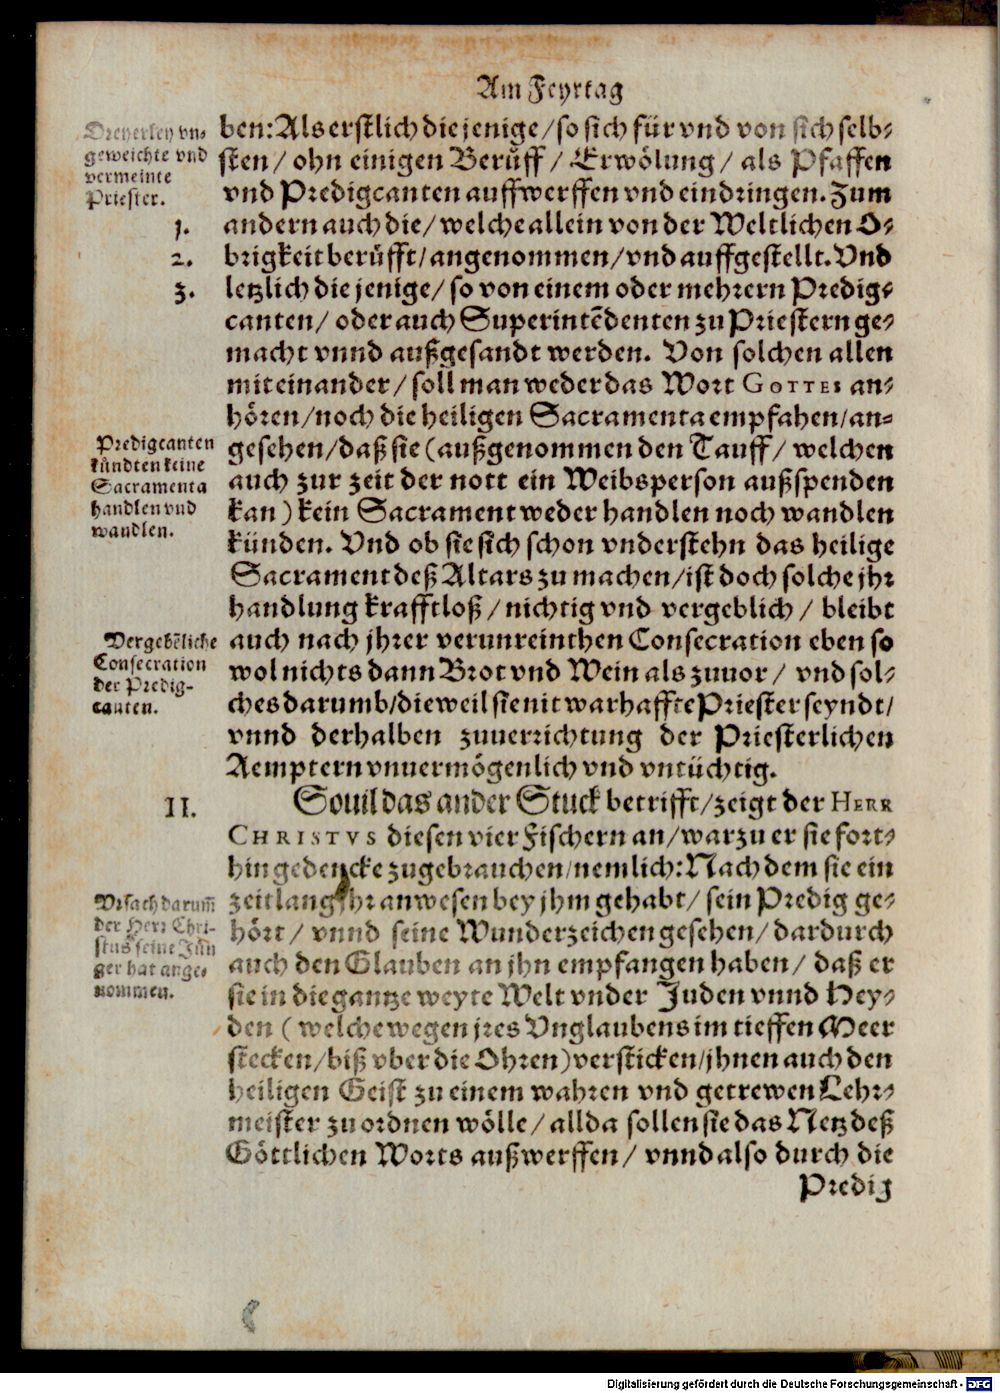 Am Feyrtag
Dreyerley vn⸗
geweichte vnd
vermeinte
Priester.
1.
2.
3.
ben: Als erstlich die jenige / so sich für vnd von sich selb⸗
sten / ohn einigen Berůff / Erwölung / als Pfaffen
vnd Predigcanten auffwerffen vnd eindringen. Zum
andern auch die / welche allein von der Weltlichen O⸗
brigkeit berůfft / angenommen / vnd auffgestellt. Vnd
letzlich die jenige / so von einem oder mehrern Predig⸗
canten / oder auch Superintēdenten zu Priestern ge⸗
macht vnnd außgesandt werden. Von solchen allen
miteinander / soll man weder das Wort GOTTES an⸗
hören / noch die heiligen Sacramenta empfahen / an⸗
Predigcanten
kündten keine
Sacramenta
handlen vnd
wandlen.
gesehen / daß sie (außgenommen den Tauff / welchen
auch zur zeit der nott ein Weibsperson außspenden
kan) kein Sacrament weder handlen noch wandlen
künden. Vnd ob sie sich schon vnderstehn das heilige
Sacrament deß Altars zu machen / ist doch solche jhr
handlung krafftloß / nichtig vnd vergeblich / bleibt
Vergebēliche
Consecration
der Predig-
canten.
auch nach jhrer verunreinthen Consecration eben so
wol nichts dann Brot vnd Wein als zuuor / vnd sol⸗
ches darumb / dieweil sie nit warhaffte Priester seyndt /
vnnd derhalben zuuerrichtung der Priesterlichen
Aemptern vnuermögenlich vnd vntüchtig.
II.
Souil das ander Stuck betrifft / zeigt der HERR
CHRISTVS diesen vier Fischern an / warzu er sie fort⸗
hin gedencke zugebrauchen / nemlich: Nach dem sie ein
Vrsach darum̄
der Herr Chri-
stus seine Jün
ger hat ange⸗
nommen.
zeitlang jhr anwesen bey jhm gehabt / sein Predig ge⸗
hört / vnnd seine Wunderzeichen gesehen / dardurch
auch den Glauben an jhn empfangen haben / daß er
sie in die gantze weyte Welt vnder Juden vnnd Hey⸗
den (welche wegen jres Vnglaubens im tieffen Meer
stecken / biß vber die Ohren) versticken / jhnen auch den
heiligen Geist zu einem wahren vnd getrewen Lehr⸗
meister zuordnen wölle / allda sollen sie das Netz deß
Göttlichen Worts außwerffen / vnnd also durch die
Predig
Digitalisierung gefördert durch die Deutsche Forschungsgemeinschaft - DFG